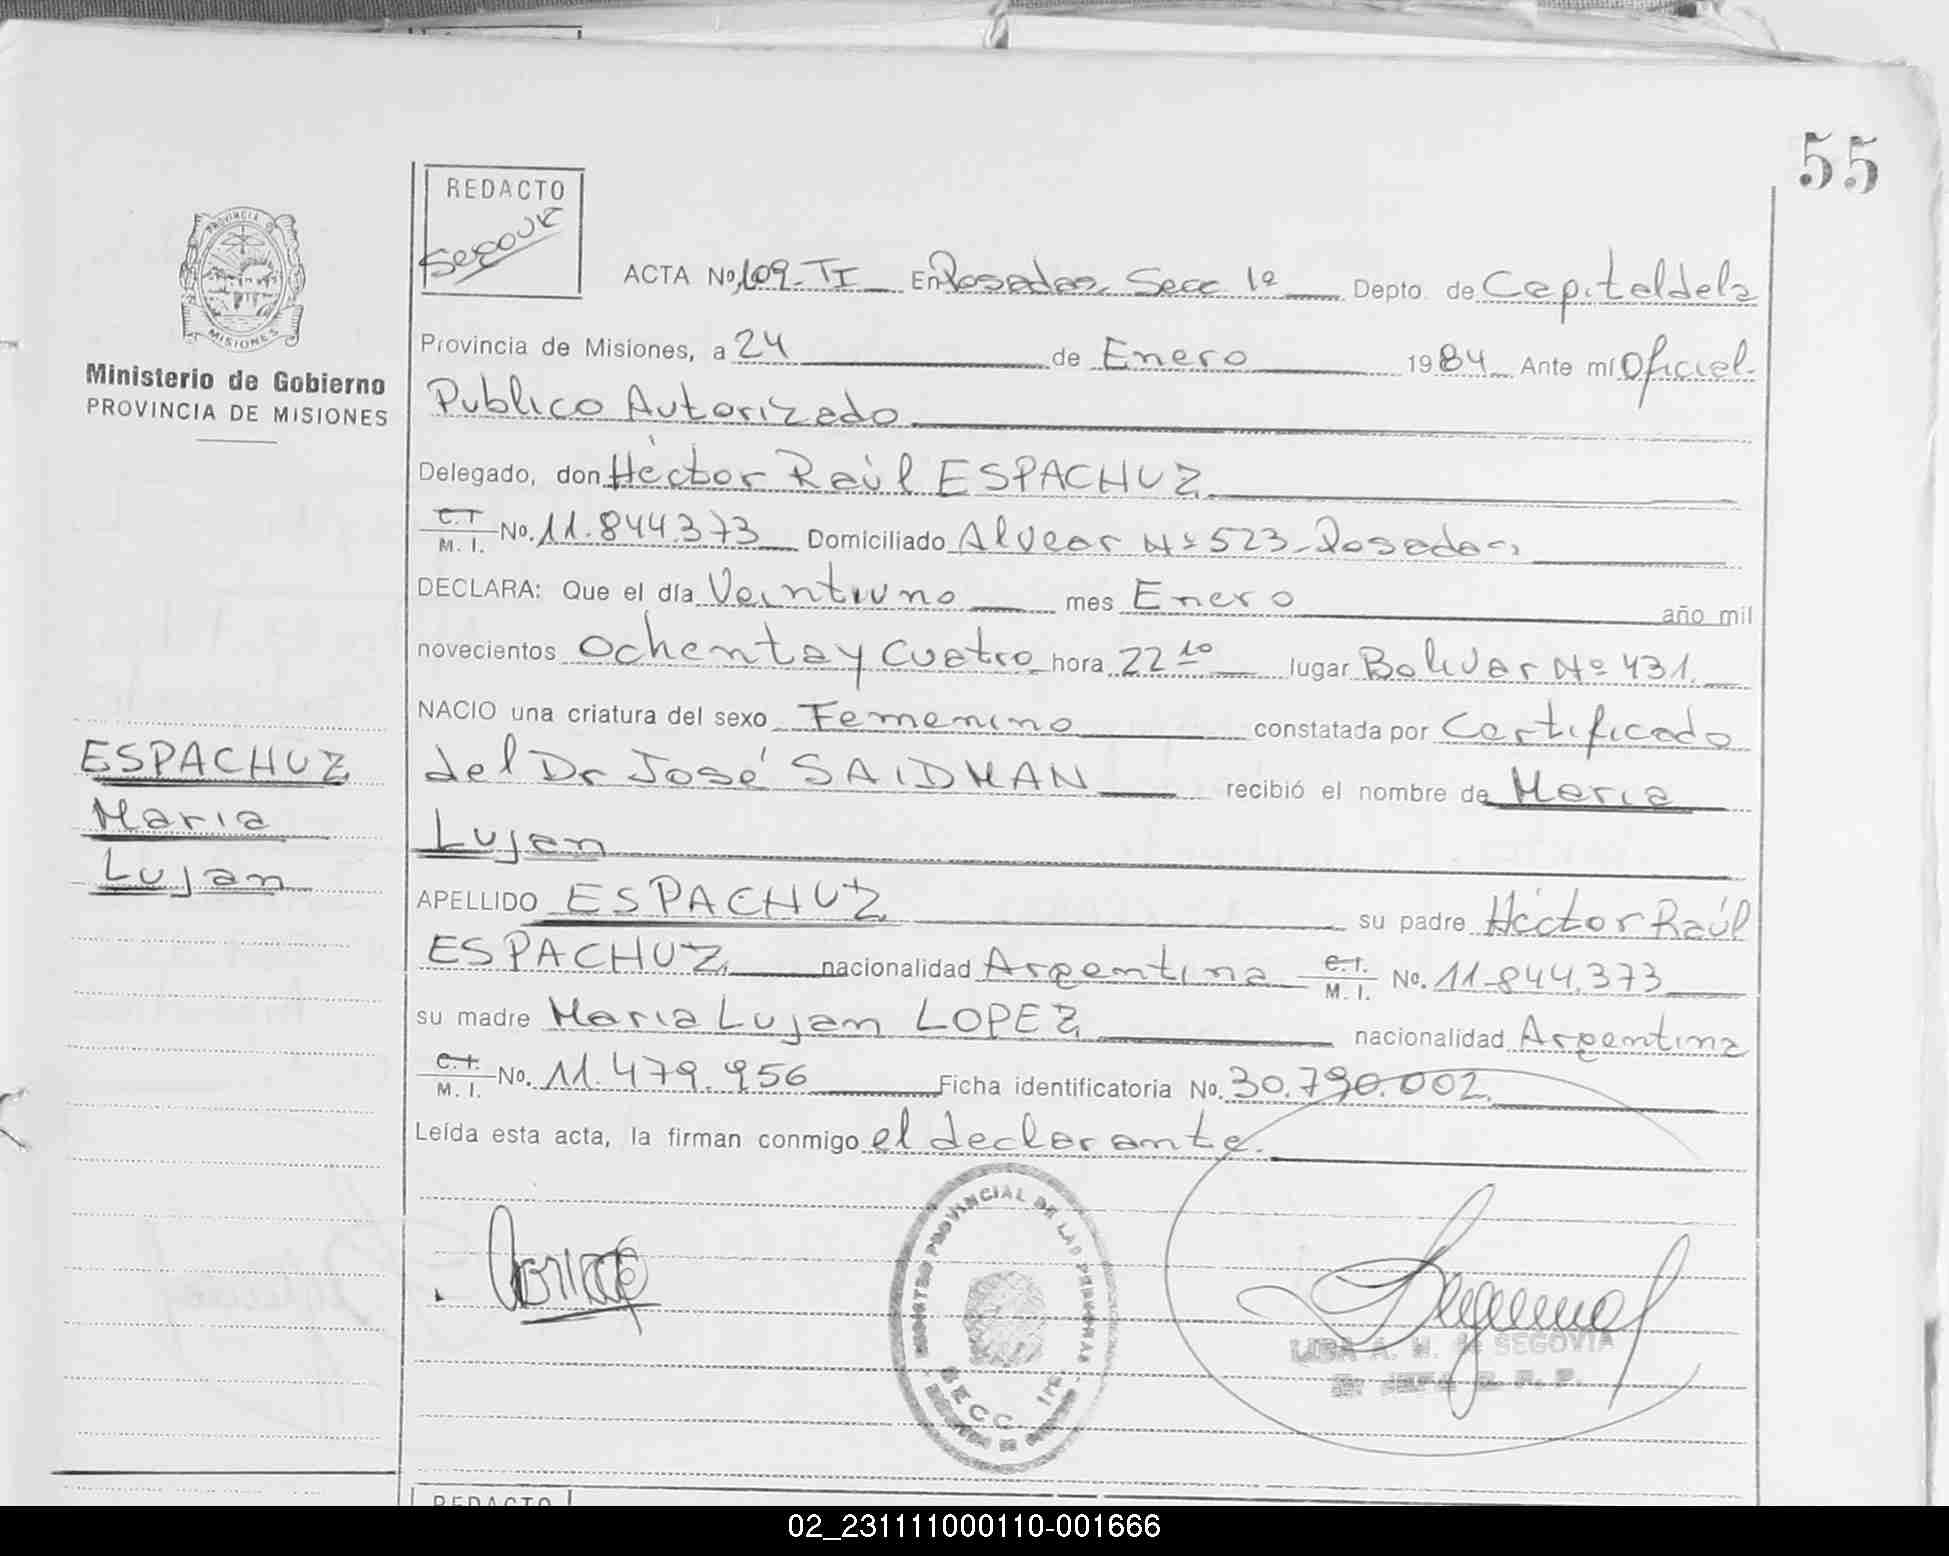 55
REDACTO
PROVINCIA DE
MISIONES
Ministerio de Gobierno
PROVINCIA DE MISIONES
ACTA No. 109-TI En Posadas Secc 1º Depto. de Capital de la
Provincia de Misiones, a 24 de Enero 1984 Ante mí Oficial
Publico Autorizado
Delegado, don Héctor Raúl ESPACHUZ
C.I. M. I. No. 11.844.373 Domiciliado Alvear Nº 523-Posadas
DECLARA: Que el día Veintiuno mes Enero año mil
novecientos Ochenta y Cuatro hora 22 10 lugar Bolivar Nº 431.
NACIO una criatura del sexo Femenino constatada por Certificado
del Dr José SAIDMAN recibió el nombre de Maria
Lujan
ESPACHUZ
Maria
Lujan
APELLIDO ESPACHUZ su padre Héctor Raúl
ESPACHUZ nacionalidad Argentina C.I. M. I. No. 11.844.373
su madre Maria Lujan LOPEZ nacionalidad Argentina
C.I. M. I. No. 11.479.956 Ficha identificatoria No. 30.790.002.
Leída esta acta, la firman conmigo el declarante.
REGISTRO PROVINCIAL DE LAS PERSONAS
SECC. 1ra
A. M. de SEGOVIA
REDACTO
02_231111000110-001666